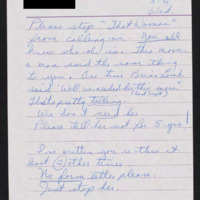 Wed.
Please stop "That Woman"
from calling in. You all
know who she is. This morn
a man said the same thing
to you. One time Brian Lamb
said "Well, we need her they say"
That's pretty telling.
We don't need her.
Please tell her not for 5 yrs
I've written you on this at
least (2) other times
No form letter please.
Just stop her.